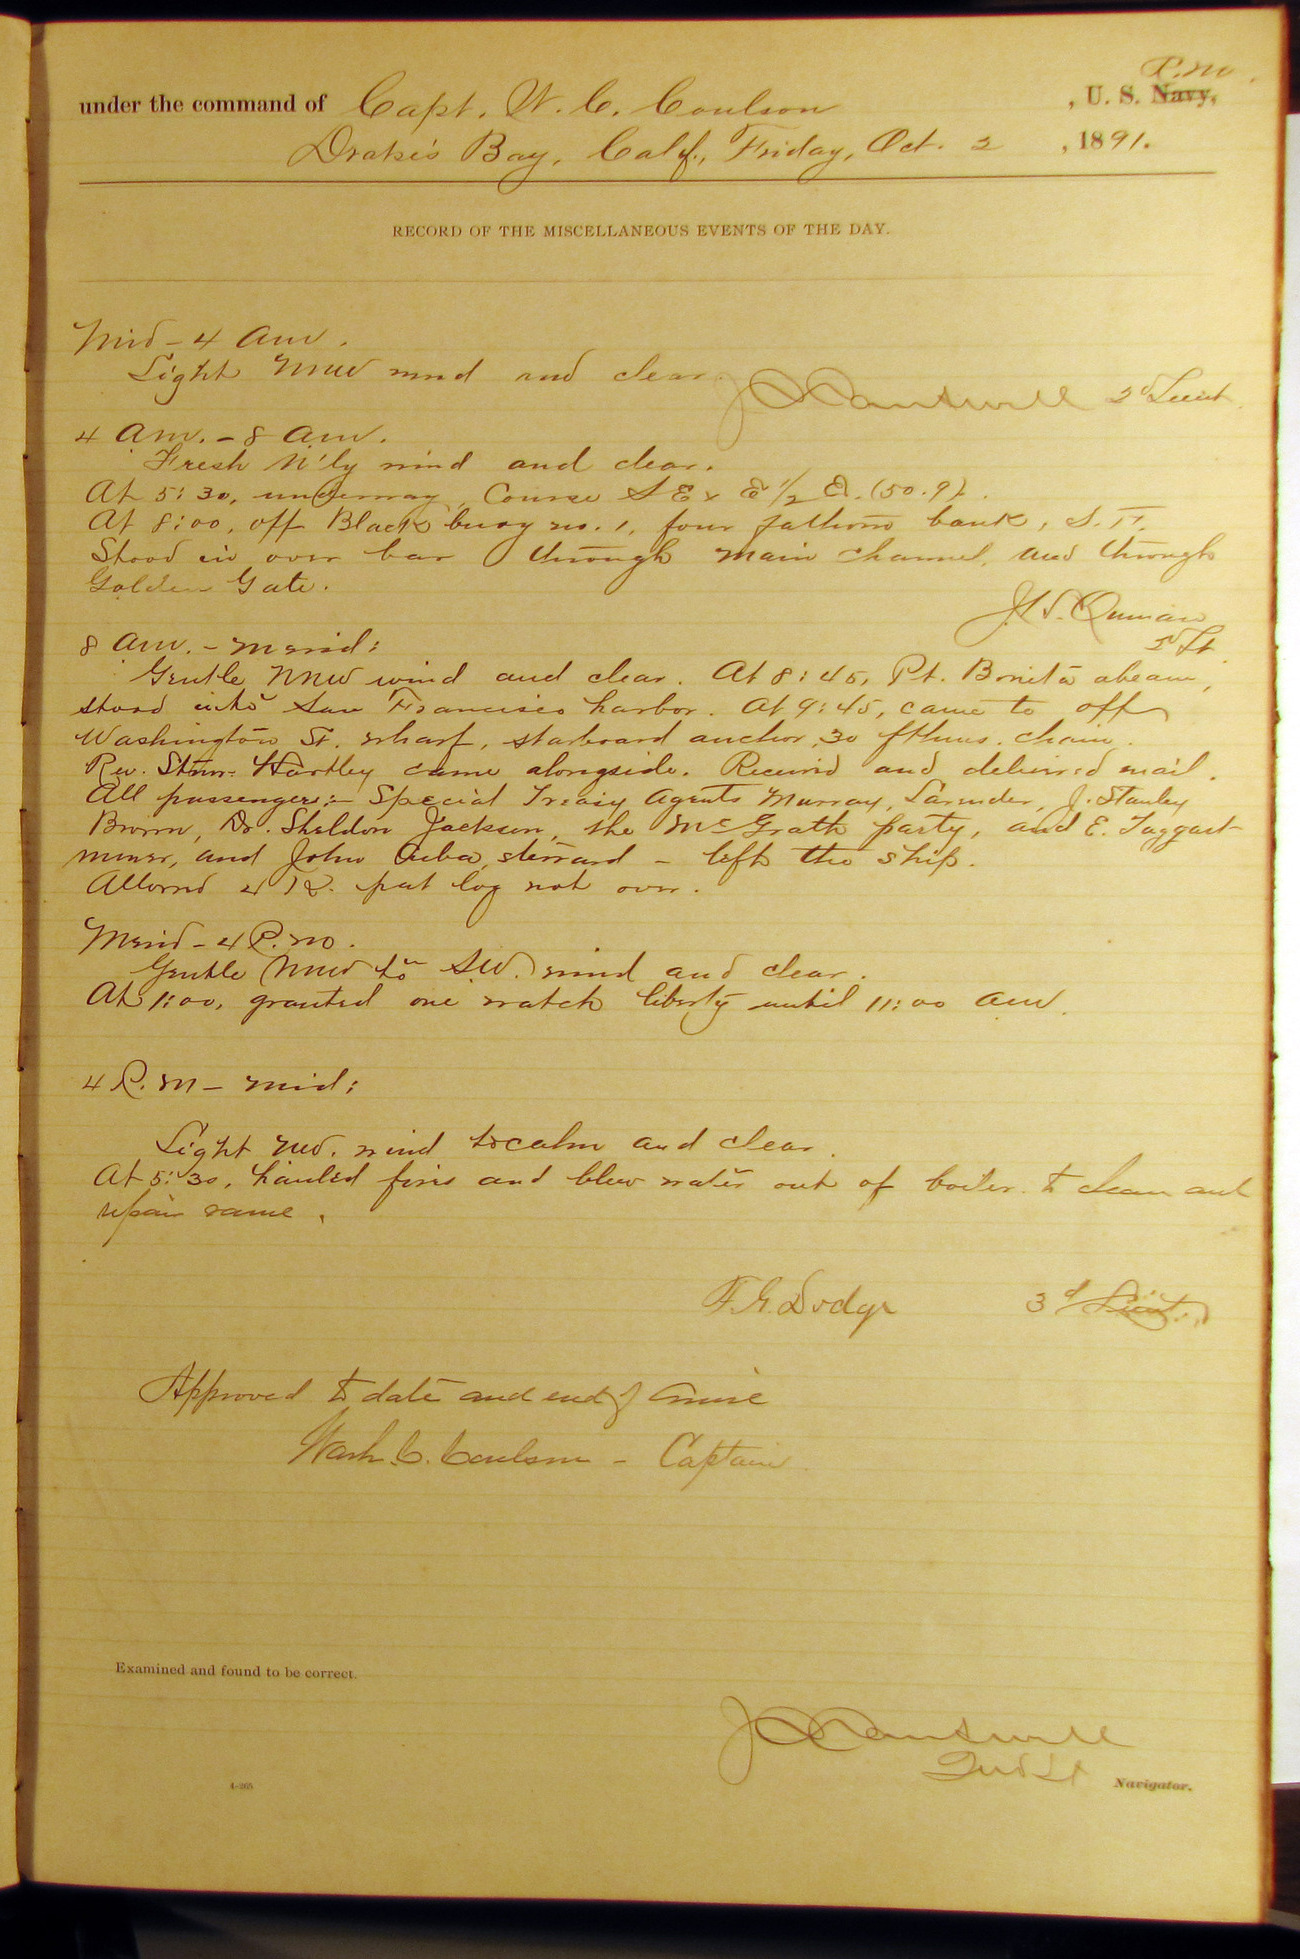 R.M.
under the command of Capt. W. C. Coulson , U. S. Navy,
Drake's Bay, Calif., Friday, Oct. 2 , 1891.
RECORD OF THE MISCELLANEOUS EVENTS OF THE DAY.
Mid - 4 am.
Light NNW wind and clear.
J C Cantwell 2d Lieut.
4 am. - 8 am.
Fresh N'ly wind and clear.
At 5:30, underway, Course S E x E 1/2 E. (50.9).
At 8:00, off Black buoy no. 1, four fathom bank, S. F.
Stood in over bar through main channel, and through
Golden Gate.
2d Lt.
8 am. - merid:
Gentle NNW wind and clear. At 8:45, Pt. Bonita abeam,
stood into San Francisco harbor. At 9:45, came to off
Washington St. wharf, starboard anchor, 30 fthms. chain.
Rev. Stmr. Hartley came alongside. Received and delivered mail.
All passengers:- Special Treas'y Agents Murray, Lavender, J. Stanley
Brown, Dr. Sheldon Jackson, the McGrath party, and E. Taggart
miner, and John Cuba, steward - left the ship.
pat log not over.
Merid - 4 P.M.
Gentle NNW to SW. wind and clear.
At 1:00, granted one watch liberty until 11:00 am.
4 P.M - mid:
Light NW. wind to calm and clear.
At 5:30, hauled fires and blew water out of boiler to clean and
repair same.
F. G. Dodge 3d Lieut.
Approved to date and end of Cruise
Wash. C. Coulson - Captain
Examined and found to be correct.
J C Cantwell
2nd Lt Navigator.
4-265